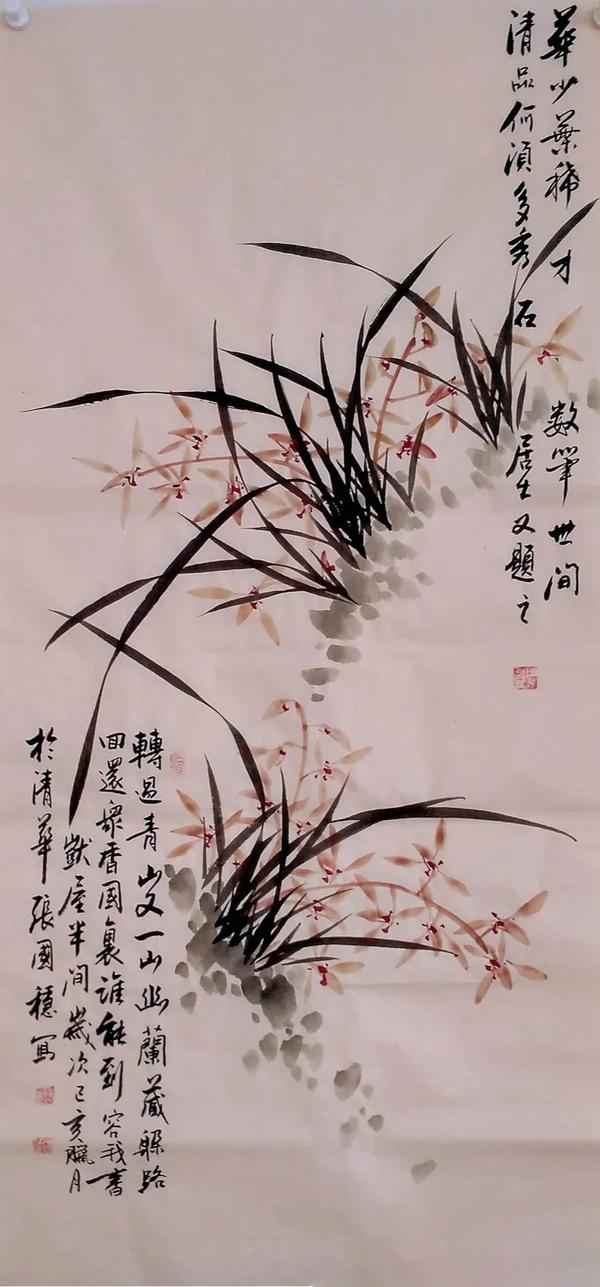 華少葉稀才数筆世間
清品何須多秀石居士又題之
轉過青山又一山幽蘭藏躲路
回還眾香国裏誰能到容我書
獃屋半間歲次己亥臘月
於清華張國穩寫